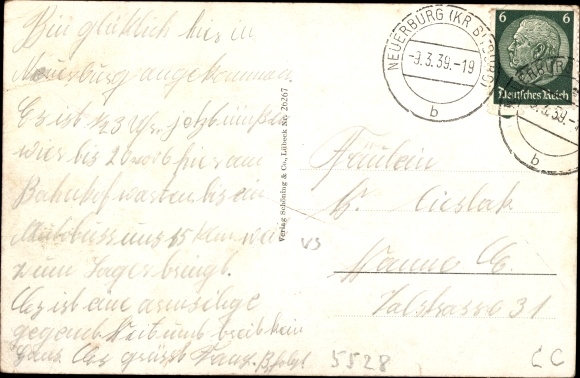 Bin glücklich hier in
Neuerburg angekommen.
Es ist ½3 Uhr, jetzt müssen
wir bis 20 vor 6 hier am
Bahnhof warten bis ein
Autobus uns 15 km weit
zum Lager bringt.
Es ist eine armselige
gegend. Weit und breit kein
Haus. Es grüsst Franz. B. folgt
Verlag Schöning & Co., Lübeck Nr. 26267
NEUERBURG (KR BITBURG)
-9.3.39.-19
b
6 6
Deutsches Reich
b
Fräulein
Cieslak
Wanne
31
vs
5528
CC